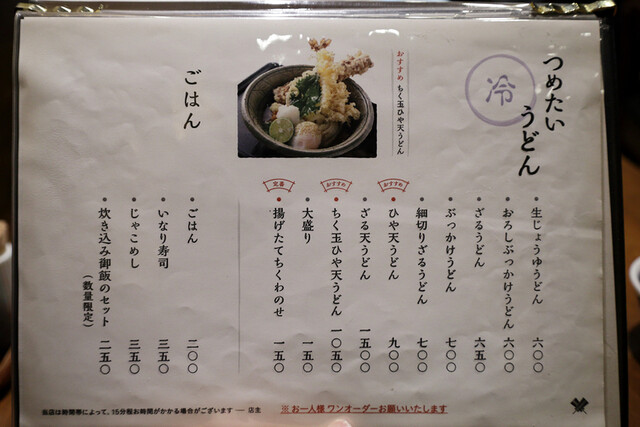 つめたい
うどん
冷
おすすめ ちく玉ひや天うどん
生じょうゆうどん 六〇〇
おろしぶっかけうどん 六〇〇
ざるうどん 六五〇
ぶっかけうどん 七〇〇
細切りざるうどん 七〇〇
おすすめ
ひや天うどん 九〇〇
ざる天うどん 一五〇〇
おすすめ
ちく玉ひや天うどん 一〇五〇
大盛り 一五〇
定番
揚げたてちくわのせ 一五〇
ごはん
ごはん 二〇〇
いなり寿司 三五〇
じゃこめし 三五〇
炊き込み御飯のセット 二五〇
(数量限定)
当店は時間帯によって、15分程お時間がかかる場合がございます ── 店主
※ お一人様 ワンオーダーお願いいたします